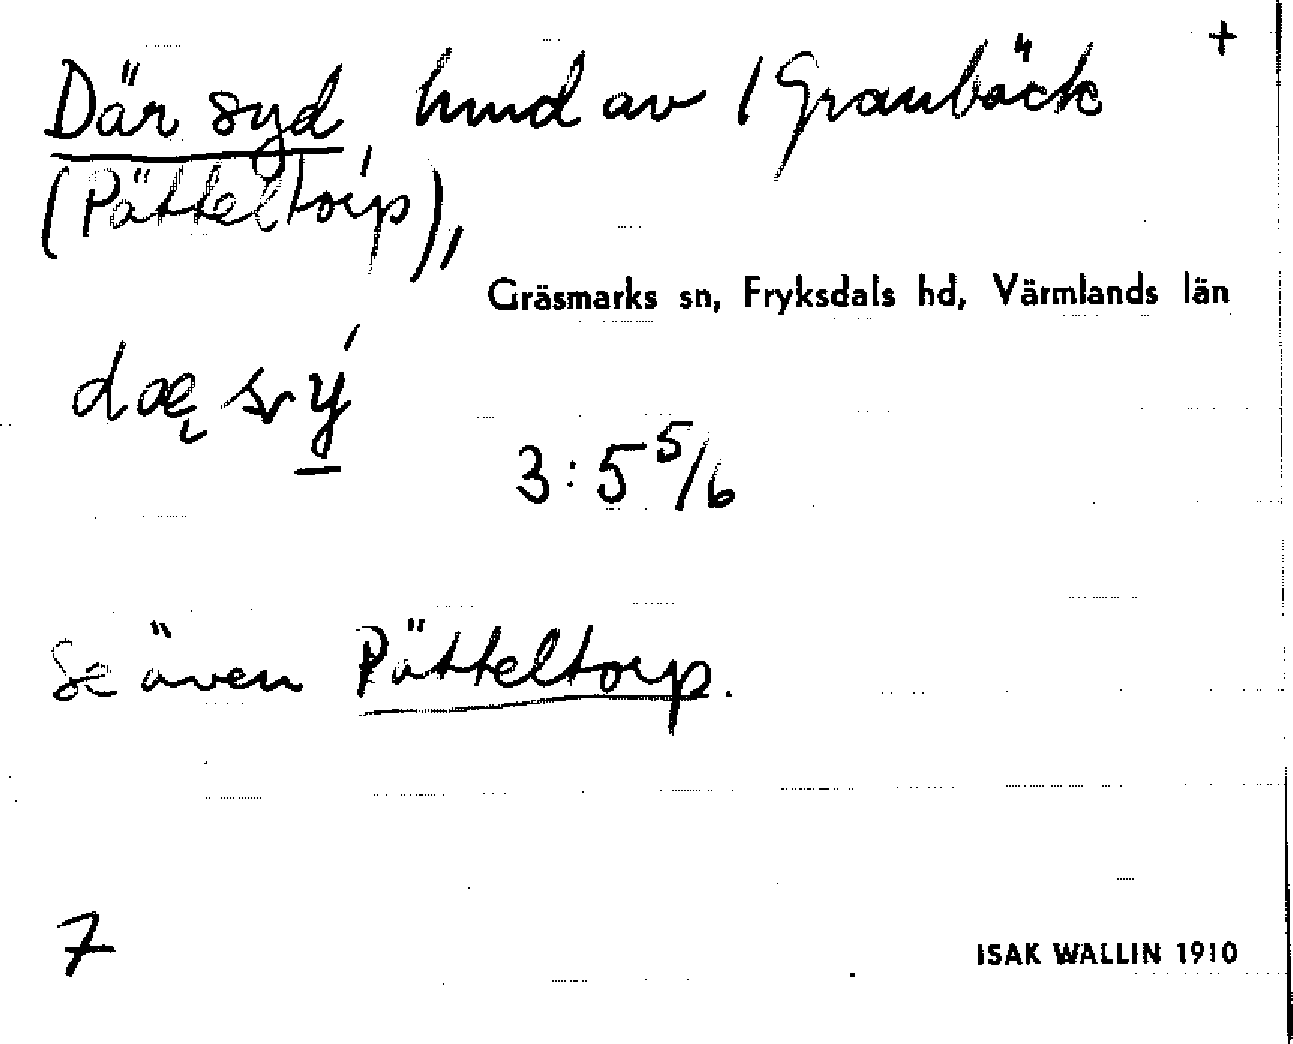 +
Där syd, hmd av 1 Granbäck
(Pätteltorp),
Gräsmarks sn, Fryksdals hd, Värmlands län
3:5 5/6
Se även Pätteltorp.
7
ISAK WALLIN 1910